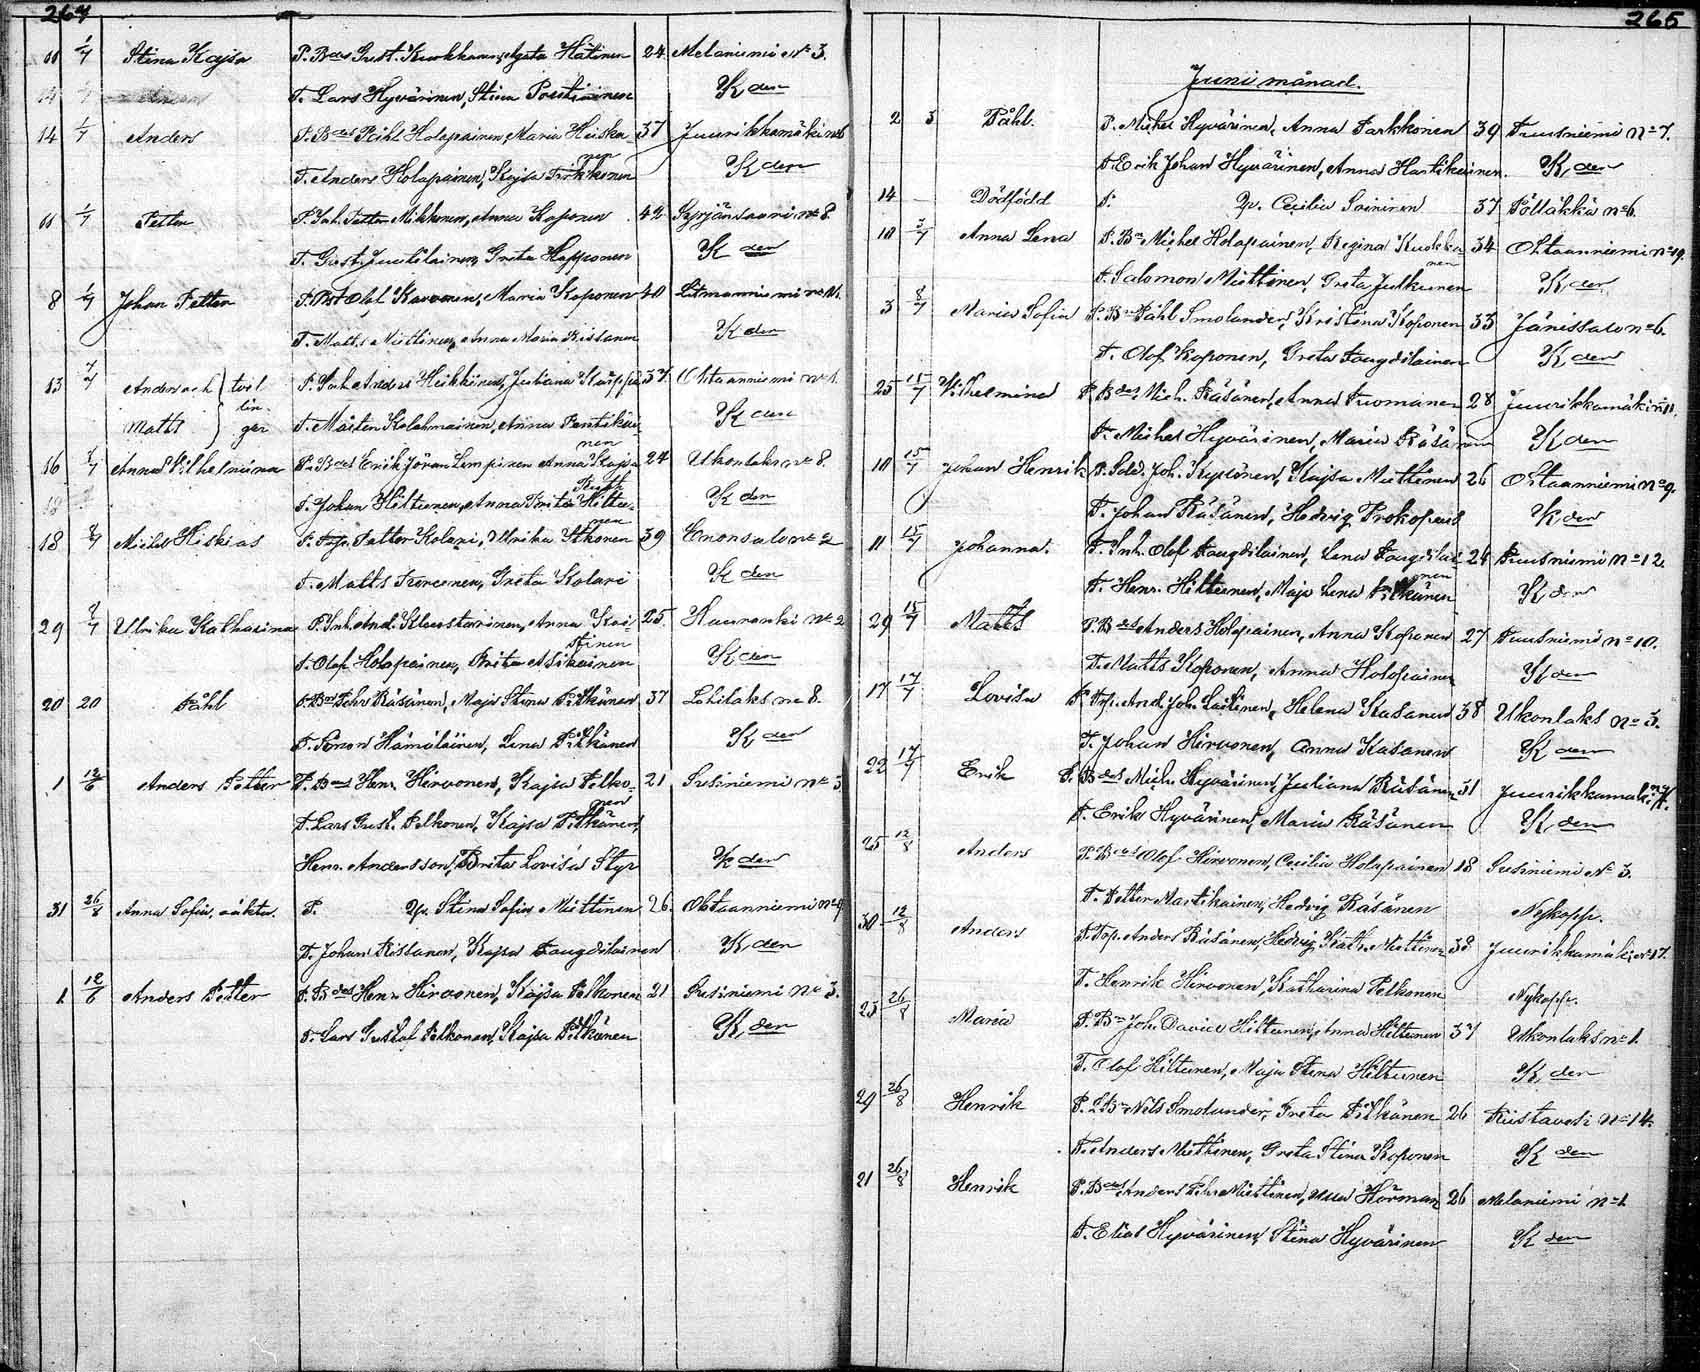 264
11 1/7 Stina Kajsa P. Bdes Gust. Kuokkanen, Agata Hätinen 24 Melaniemi No 3.
T. Lars Hyvärinen, Stina Poutiainen K den
14 1/7 Anders P. Bdes Påhl Holopainen, Maria Heiska- 37 Juurikkamäki No 6
nen
T. Anders Holapainen, Kajsa Pirkkonen K den
11 1/7 Petter P. Inh. Petter Mikkonen, Anna Koponen 42 Syrjänsaari No 8
T. Gust. Juutilainen, Greta Happonen K den
8 1/7 Johan Petter P. Olof Karvonen, Maria Koponen 40 Litmanniemi No
T. Matts Miettinen, Anna Maria Rissanen K den
13 4/7 Anders och tvil P. Inh Anders Heikkinen, Juliana 37 Ohtaanniemi No 1.
lin-
Matts ger T. Mårten Kolehmainen, Anna Pentikäi- K den
nen
16 Anna Vilhelmina P. Bdes Erik Jöran Limpinen Anna Kajsa 24 Ukonlaks No 8.
T. Johan Hiltunen, Anna Brita Hiltu- K den
nen
18 Michel Hiskias P. Trp. Petter Kolari, Ulrika Itkonen 39 Enonsalo No 2
T. Matts Tirronen, Greta Kolari K den
29 Ulrika Katharina P. Inh. And. Klaustarinen, Anna Kai- 25. No 2
T. Olof Holopainen, Brita Asikainen K den
20 20 Påhl P. Bdn Pehr Räsänen, Maja Stina Pitkänen 37 Lohilaks No 8.
T. Simon Hämäläinen, Lena Pitkänen K den
1 12/6 Anders Petter P. Bdes Henr. Hirvonen, Kajsa Pelko- 21 Susiniemi No 3
nen
T. Lars Gust. Pelkonen, Kajsa Pitkänen,
Henr. Andersson, Brita Lovisa Styr K den
31 26/8 Anna Sofia, oäkta. P. Qp. Stina Sofia Miettinen 26. Ohtaanniemi No 9
T. Johan Rissanen, Kajsa Taugdilainen K den
1 12/6 Anders Petter P. Bdes Henr. Hirvonen, Kajsa Pelkonen 21 Susiniemi No 3.
T. Lars Gustaf Pelkonen, Kajsa Pitkänen K den
265
Juni månad.
2 3 Påhl. P. Michel Hyvärinen, Anna Parkkonen 39 Tuusniemi No 7.
T. Erik Johan Hyvärinen, Anna Hartikainen. K den
14 — Dödfödd P. Qp. Cecilia Soininen 37 Pölläkkä No 6.
10 3/7 Anna Lena P. Bn Michel Holopainen, Regina Kuokka- 34 Ohtaanniemi No 19.
nen
T. Salomon Miettinen, Greta Julkunen K den
3 8/7 Maria Sofia P. Bn Påhl Smolander, Kristina Koponen 33 Jänissalo No 6.
T. Olof Koponen, Greta Taugdilainen K den
25 15/7 Vilhelmina P. Bdes Mich. Räsänen, Anna Tuomanen 28 Juurikkamäki No 11.
T. Michel Hyvärinen, Maria Räsänen K den
10 15/7 Johan Henrik P. Sold. Joh. Kyrönen, Kajsa Miettinen 26 Ohtaanniemi No 9.
T. Johan Räsänen, Hedvig Prokopeus K den
11 15/7 Johanna. P. Inh. Olof Taugdilainen, Lena Taugdilai- 24 Tuusniemi No 12.
nen
T. Henr. Hiltunen, Maja Lena Pitkänen K den
29 15/7 Matts P. Bdes Anders Holopainen, Anna Koponen 27 Tuusniemi No 10.
T. Matts Koponen, Anna Holopainen K den
17 17/7 Lovisa P. Trp. And. Joh. Laitinen, Helena Kasanen 38 Ukonlaks No 3.
T. Johan Hirvonen, Anna Kasanen K den
22 17/7 Erik P. Bdes Mich. Hyvärinen, Juliana Räsänen 31 Juurikkamäki
T. Erik Hyvärinen, Maria Räsänen K den
25 12/8 Anders P. Bdes Olof Hirvonen, Cecilia Holopainen 18 Susiniemi No 3.
T. Petter Martikainen, Hedvig Räsänen Nykopp.
30 12/8 Anders P. Trp. Anders Räsänen, Hedvig Kath. Miettinen 38 Juurikkamäki No 17.
T. Henrik Hirvonen, Katharina Pelkonen Nykopp.
23 26/8 Maria P. Bn Joh. David Hiltunen, Anna Hiltunen 37 Ukonlaks No 1.
T. Olof Hiltunen, Maja Stina Hiltunen K den
29 26/8 Henrik P. LBn Nils Smolander, Greta Pitkänen 26 Riistavesi No 14.
T. Anders Miettinen, Greta Stina Koponen K den
21 26/8 Henrik P. Bdes Anders Pehr Miettinen, Ulla Hörman 26 Melaniemi No 1.
T. Elias Hyvärinen, Stina Hyvärinen K den